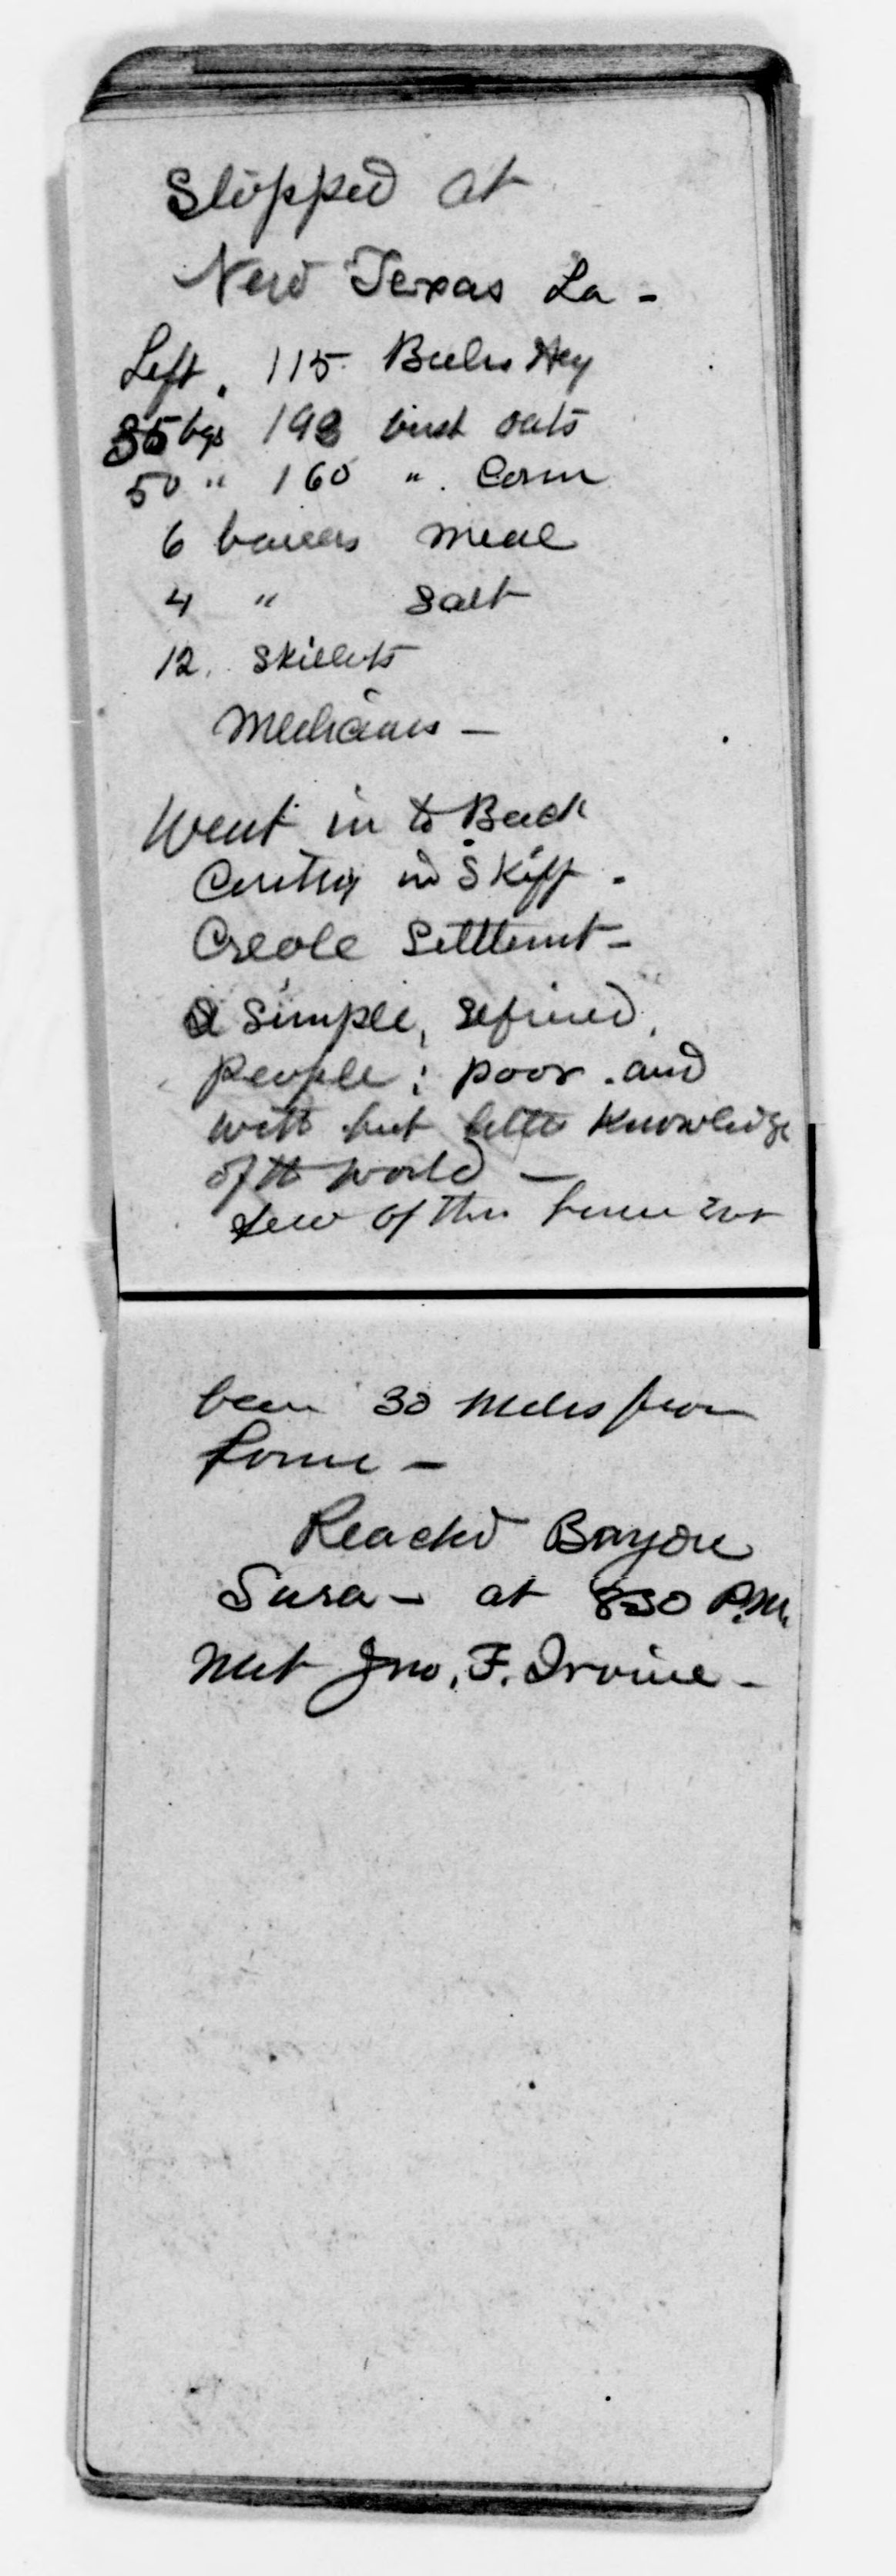 Stopped at
New Texas La -
Left. 115 Bales Hay
35 bgs 198 bush oats
50 " 160 " Corn
6 barrels meal
4 " Salt
12. Skillets
Medicines -
Went in to Back
Contry in Skiff.
Creole Settlemt -
a simple, refined,
people; poor. and
with but little Knowledge
of th world -
few of them have ever
been 30 Miles from
home -
Reachd Bayou
Sara - at 830 P.M.
Met Jno. F. Irvine -